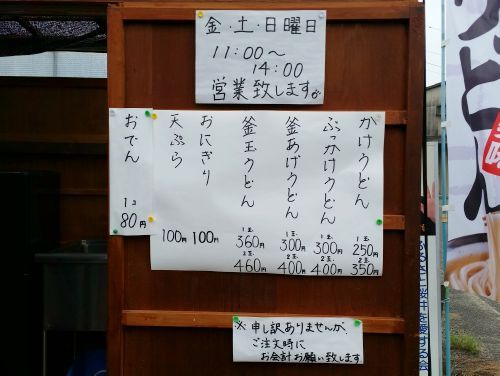 金・土・日曜日
11:00〜
14:00
営業致します
かけうどん
1玉
250円
2玉
350円
ぶっかけうどん
1玉
300円
2玉
400円
釜あげうどん
1玉
300円
2玉
400円
釜玉うどん
1玉
360円
2玉
460円
おにぎり
100円
天ぷら
100円
おでん
1コ
80円
※申し訳ありませんが、
ご注文時に
お会計お願い致します